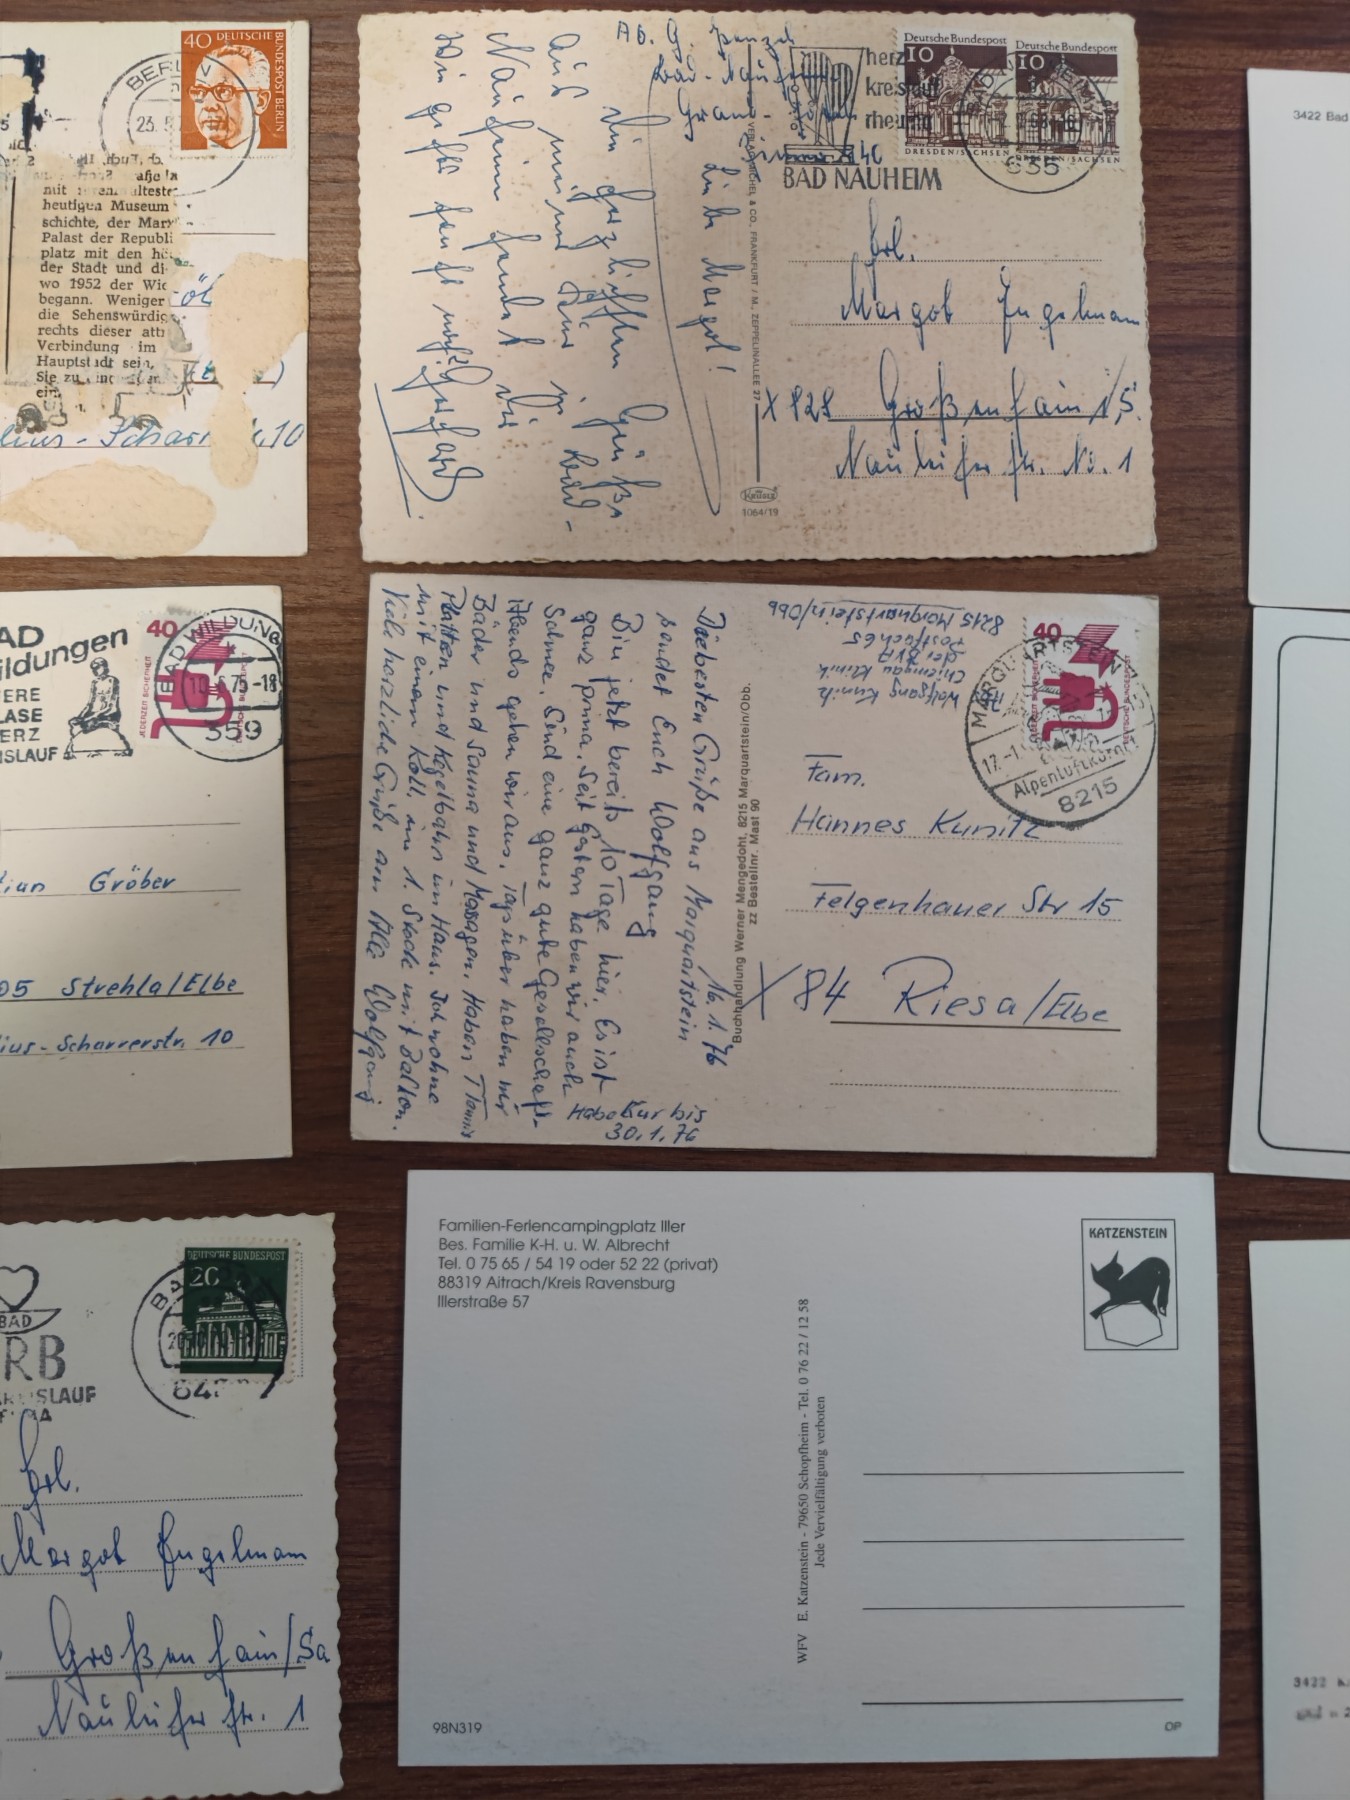 40 DEUTSCHE
BUNDESPOST BERLIN
BERLIN
23.5
mit ihren ältesten
heutigen Museum
schichte, der Marx
Palast der Republi
platz mit den
der Stadt und di
wo 1952 der Wie
begann. Weniger
die Sehenswürdig
rechts dieser attr
Verbindung im
Hauptstadt sein,
Sie zu
Julius-Scharr 10
Bad-Nauheim
Zimmer 340
herz
kreislauf
rheuma
BAD NAUHEIM
Deutsche Bundespost
10
DRESDEN/SACHSEN
Deutsche Bundespost
10
DRESDEN/SACHSEN
635
Liebe Margot!
Die herzlichsten Grüße
aus meiner Kur in Bad-
Nauheim sendet Dir
Gerhard
Wie geht's sonst noch?
& CO., FRANKFURT / M., ZEPPELINALLEE 27
KRÜGER
1064/19
Frl.
Margot Engelmann
X 828 Großenhain 1,5.
Nauleiser Str. No. 1
3422 Bad
BAD
Wildungen
NIERE
BLASE
HERZ
KREISLAUF
40
JEDERZEIT SICHERHEIT
DEUTSCHE BUNDESPOST
BAD WILDUNGEN
10.6.75-18
359
Gröber
Strehla/Elbe
Julius-Scharrerstr. 10
Abs.
Wolfgang Kunitz
Chiemgau Klinik
der BVA
Postfach 65
8215 Marquartstein/Obb
16.1.76
Liebesten Grüße aus Marquartstein
sendet Euch Wolfgang
Bin jetzt bereits 10 Tage hier. Es ist
ganz prima. Seit Gestern haben wir auch
Schnee. Sind eine ganz gute Gesellschaft.
Abends gehen wir aus. Tagsüber haben wir
Bäder und Sauna und Massagen. Haben Tennis
Platten und Kegelbahn im Haus. Ich wohne
mit einem Koll. im 1. Stock mit Balkon.
Viele herzliche Grüße an Alle Wolfgang
Habe Kur bis
30.1.76
Buchhandlung Werner Mengedoht, 8215 Marquartstein/Obb.
zz Bestellnr. Mast 90
40
JEDERZEIT SICHERHEIT
DEUTSCHE BUNDESPOST
MARQUARTSTEIN
17.-1
Alpenluftkurort
8215
Fam.
Hannes Kunitz
Felgenhauer Str 15
X 84 Riesa/Elbe
BAD
DEUTSCHE BUNDESPOST
20
Frl.
Margot Engelmann
Großenhain/Sa
Nauleiser Str. 1
Familien-Feriencampingplatz Iller
Bes. Familie K-H. u. W. Albrecht
Tel. 0 75 65 / 54 19 oder 52 22 (privat)
88319 Aitrach/Kreis Ravensburg
Illerstraße 57
KATZENSTEIN
WFV E. Katzenstein - 79650 Schopfheim - Tel. 0 76 22 / 12 58
Jede Vervielfältigung verboten
98N319
DP
3422